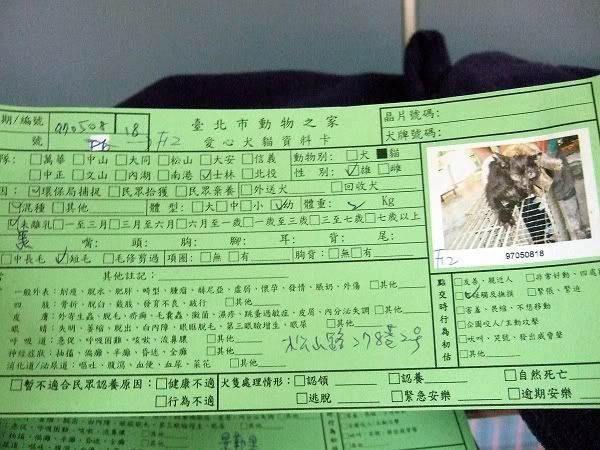 期/編號 970508 18
號 F12
臺北市動物之家
愛心犬貓資料卡
晶片號碼:
犬牌號碼:
隊: □萬華 □中山 □大同 □松山 □大安 □信義 動物別: □犬 ■貓
□中正 □文山 □內湖 □南港 ☑士林 □北投 性 別: ☑雄 □雌
因: ☑環保局捕捉 □民眾拾獲 □民眾棄養 □外送犬 □回收犬
☑混種 □其他 體 型: □大 □中 □小 ☑幼 體重: Kg
☑未離乳 □一至三月 □三月至六月 □六月至一歲 □一歲至三歲 □三至七歲 □七歲以上
嘴: 頭: 胸: 腳: 耳: 背: 尾:
□中長毛 ☑短毛 □毛修剪過 項圈: □無 □有 胸背: □無 □有
97050818
F12
其他註記:
一般外表: 削瘦、脫水、肥胖、畸型、腫瘤、赫尼亞、虛弱、懷孕、發情、脹奶、外傷 □其他
四 肢: 骨折、脫臼、截肢、發育不良、跛行 □其他
皮 膚: 外寄生蟲、脫毛、疥癬、毛囊蟲、黴菌、濕疹、跳蚤過敏症、皮屑、內分泌失調 □其他
眼 睛: 失明、萎縮、脫出、白內障、眼眶脫毛、第三眼瞼增生、眼屎 □其他
呼 吸 道: 急促、呼吸困難、咳嗽、流鼻膿 □其他
神經症狀: 抽搐、偏癱、半癱、昏迷、全癱 □其他
消化道/泌尿道: 嘔吐、腹瀉、血便、血尿、菜花 □其他
松山路278巷2號
點交時行為初估
□友善、親近人 □非常好動、四處
任觸及撫摸 □緊張、緊迫
□害羞、畏縮、不想移動
□企圖咬人/主動攻擊
□犬吠、哭號、發出威脅聲
□其他
□暫不適合民眾認養原因: □健康不適 □行為不同
犬隻處理情形: □認領 □認養 □自然死亡
□逃脫 □緊急安樂 □逾期安樂